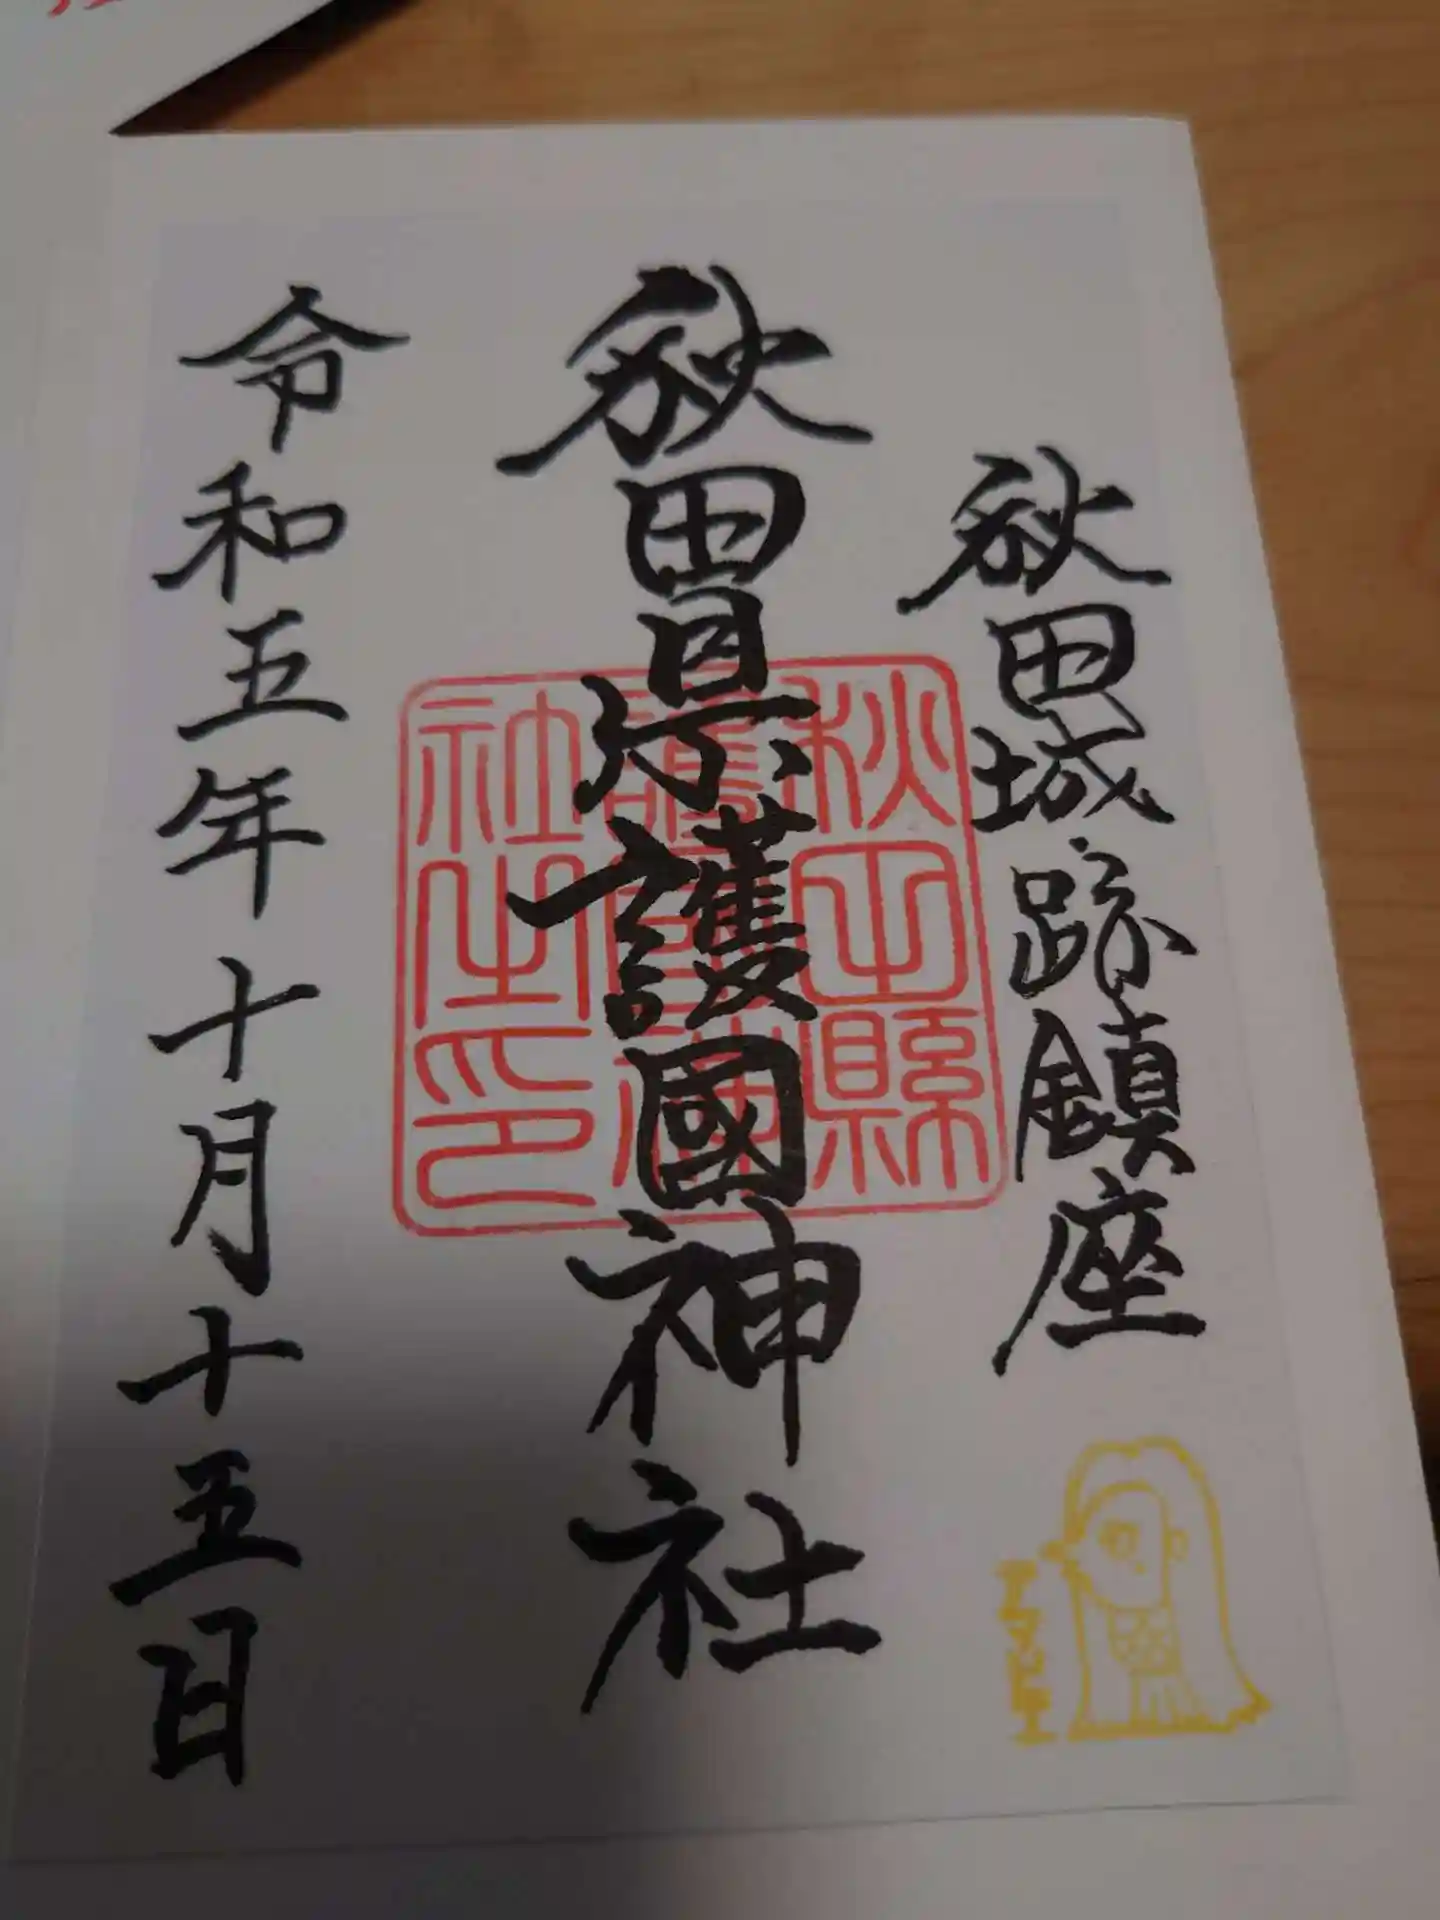 秋田城跡鎮座
秋田県護國神社
秋田縣護國神社之印
令和五年十月十五日
アマビヱ